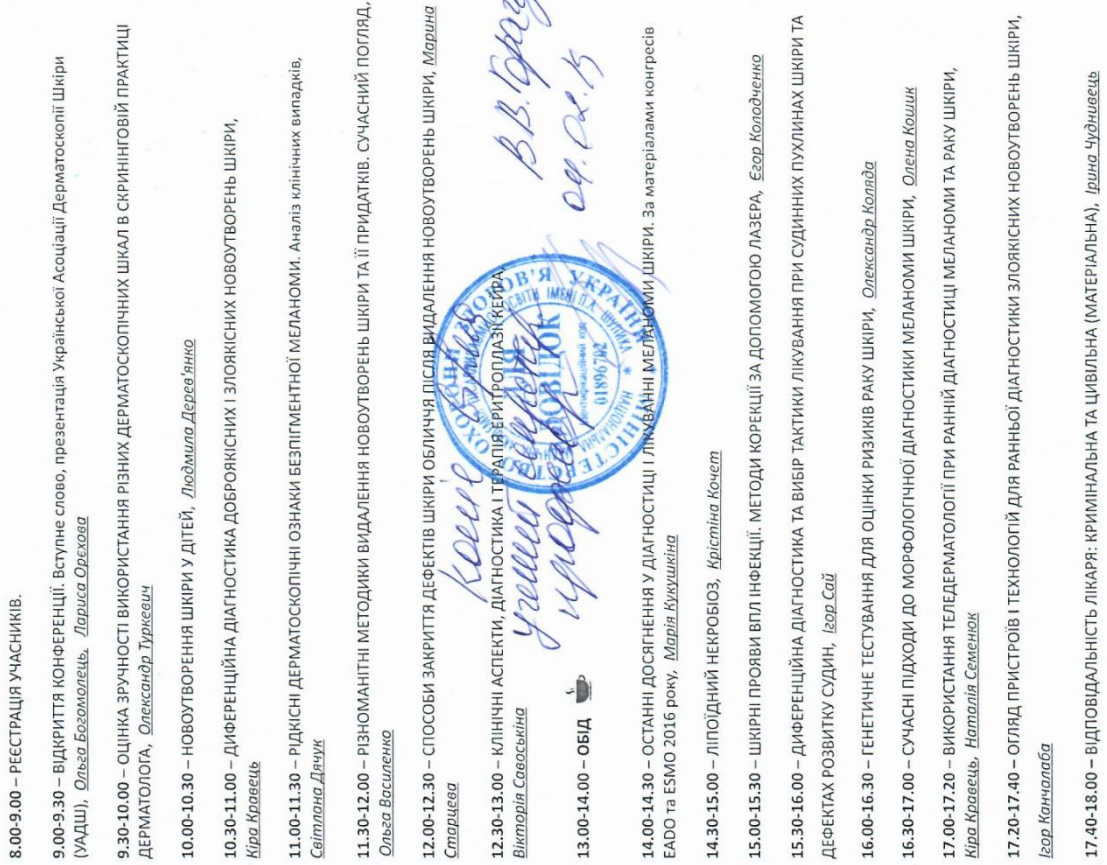 8.00-9.00 – РЕЄСТРАЦІЯ УЧАСНИКІВ.
9.00-9.30 – ВІДКРИТТЯ КОНФЕРЕНЦІЇ. Вступне слово, презентація Української Асоціації Дерматоскопії Шкіри
(УАДШ), Ольга Богомолець, Лариса Орєхова
9.30-10.00 – ОЦІНКА ЗРУЧНОСТІ ВИКОРИСТАННЯ РІЗНИХ ДЕРМАТОСКОПІЧНИХ ШКАЛ В СКРИНІНГОВІЙ ПРАКТИЦІ
ДЕРМАТОЛОГА, Олександр Туркевич
10.00-10.30 – НОВОУТВОРЕННЯ ШКІРИ У ДІТЕЙ, Людмила Дерев'янко
10.30-11.00 – ДИФЕРЕНЦІЙНА ДІАГНОСТИКА ДОБРОЯКІСНИХ І ЗЛОЯКІСНИХ НОВОУТВОРЕНЬ ШКІРИ,
Кіра Кравець
11.00-11.30 – РІДКІСНІ ДЕРМАТОСКОПІЧНІ ОЗНАКИ БЕЗПІГМЕНТНОЇ МЕЛАНОМИ. Аналіз клінічних випадків,
Світлана Дячук
11.30-12.00 – РІЗНОМАНІТНІ МЕТОДИКИ ВИДАЛЕННЯ НОВОУТВОРЕНЬ ШКІРИ ТА ЇЇ ПРИДАТКІВ. СУЧАСНИЙ ПОГЛЯД,
Ольга Василенко
12.00-12.30 – СПОСОБИ ЗАКРИТТЯ ДЕФЕКТІВ ШКІРИ ОБЛИЧЧЯ ПІСЛЯ ВИДАЛЕННЯ НОВОУТВОРЕНЬ ШКІРИ, Марина
Старцева
12.30-13.00 – КЛІНІЧНІ АСПЕКТИ, ДІАГНОСТИКА І ТЕРАПІЯ ЕРИТРОПЛАЗІЇ КЕЙРА,
Вікторія Савоськіна
13.00-14.00 – ОБІД
МІНІСТЕРСТВО ОХОРОНИ ЗДОРОВ'Я УКРАЇНИ
ДЛЯ
ДОВІДОК
01896702
04.02.15
14.00-14.30 – ОСТАННІ ДОСЯГНЕННЯ У ДІАГНОСТИЦІ І ЛІКУВАННІ МЕЛАНОМИ ШКІРИ. За матеріалами конгресів
EADO та ESMO 2016 року, Марія Кукушкіна
14.30-15.00 – ЛІПОЇДНИЙ НЕКРОБІОЗ, Крістіна Кочет
15.00-15.30 – ШКІРНІ ПРОЯВИ ВПЛ ІНФЕКЦІЇ. МЕТОДИ КОРЕКЦІЇ ЗА ДОПОМОГОЮ ЛАЗЕРА, Єгор Колодченко
15.30-16.00 – ДИФЕРЕНЦІЙНА ДІАГНОСТИКА ТА ВИБІР ТАКТИКИ ЛІКУВАННЯ ПРИ СУДИННИХ ПУХЛИНАХ ШКІРИ ТА
ДЕФЕКТАХ РОЗВИТКУ СУДИН, Ігор Сай
16.00-16.30 – ГЕНЕТИЧНЕ ТЕСТУВАННЯ ДЛЯ ОЦІНКИ РИЗИКІВ РАКУ ШКІРИ, Олександр Коляда
16.30-17.00 – СУЧАСНІ ПІДХОДИ ДО МОРФОЛОГІЧНОЇ ДІАГНОСТИКИ МЕЛАНОМИ ШКІРИ, Олена Кошик
17.00-17.20 – ВИКОРИСТАННЯ ТЕЛЕДЕРМАТОЛОГІЇ ПРИ РАННІЙ ДІАГНОСТИЦІ МЕЛАНОМИ ТА РАКУ ШКІРИ,
Кіра Кравець, Наталія Семенюк
17.20-17.40 – ОГЛЯД ПРИСТРОЇВ І ТЕХНОЛОГІЙ ДЛЯ РАННЬОЇ ДІАГНОСТИКИ ЗЛОЯКІСНИХ НОВОУТВОРЕНЬ ШКІРИ,
Ігор Канчалаба
17.40-18.00 – ВІДПОВІДАЛЬНІСТЬ ЛІКАРЯ: КРИМІНАЛЬНА ТА ЦИВІЛЬНА (МАТЕРІАЛЬНА), Ірина Чуднивець